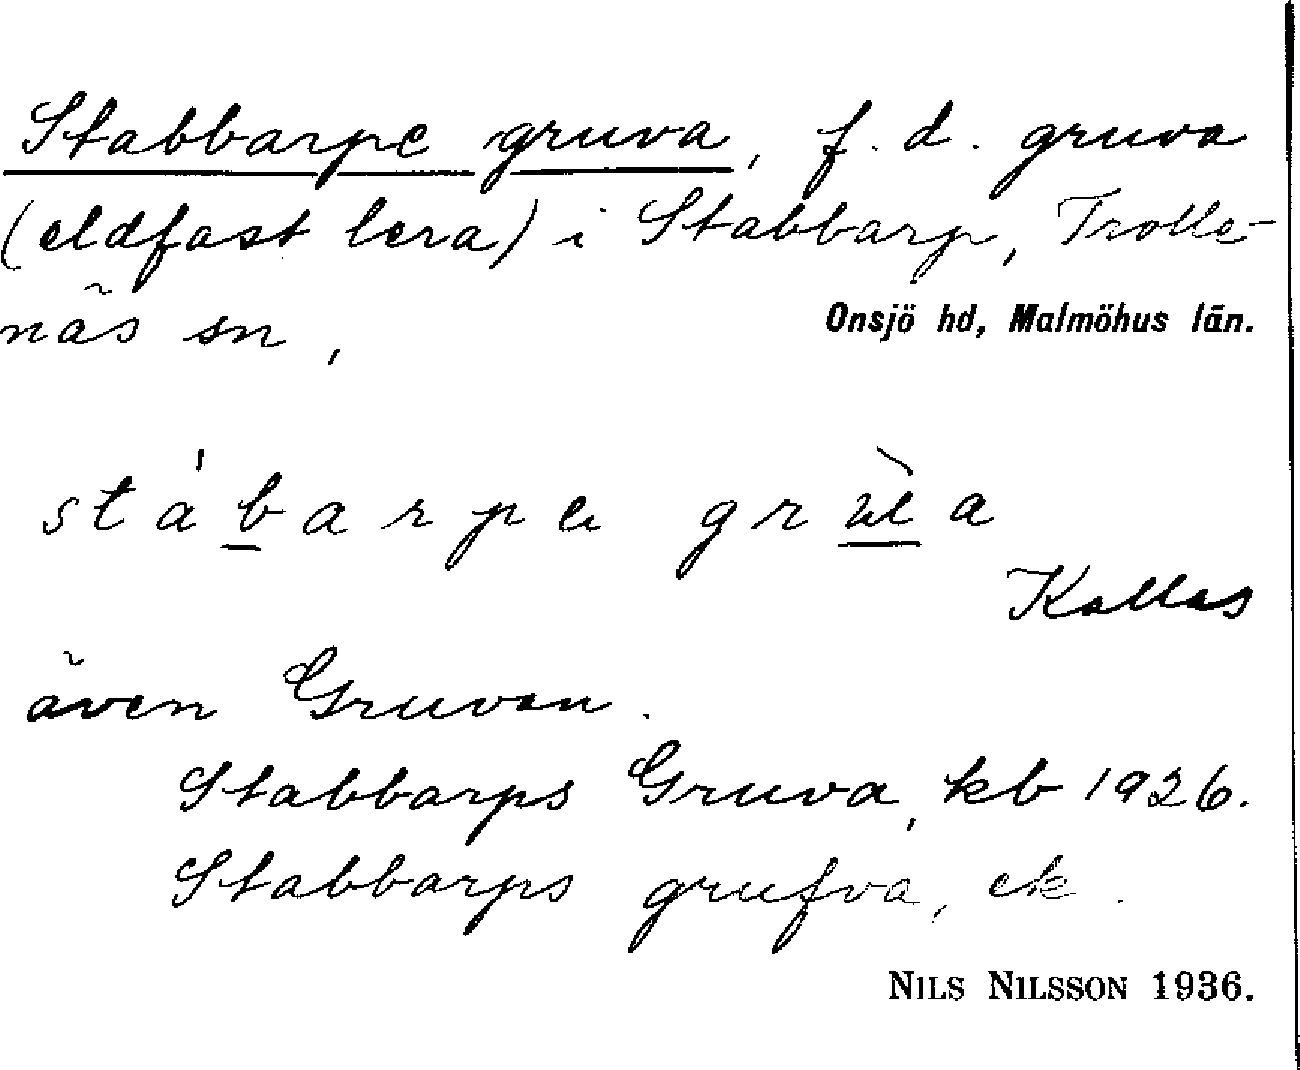 Stabbarpe gruva, f. d. gruva
(eldfast lera) i Stabbarp, Trolle-
näs sn, Onsjö hd, Malmöhus län.
stábarpe
Kallas
även Gruvan.
Stabbarps Gruva, kb 1926.
Stabbarps grufva, ek.
NILS NILSSON 1936.